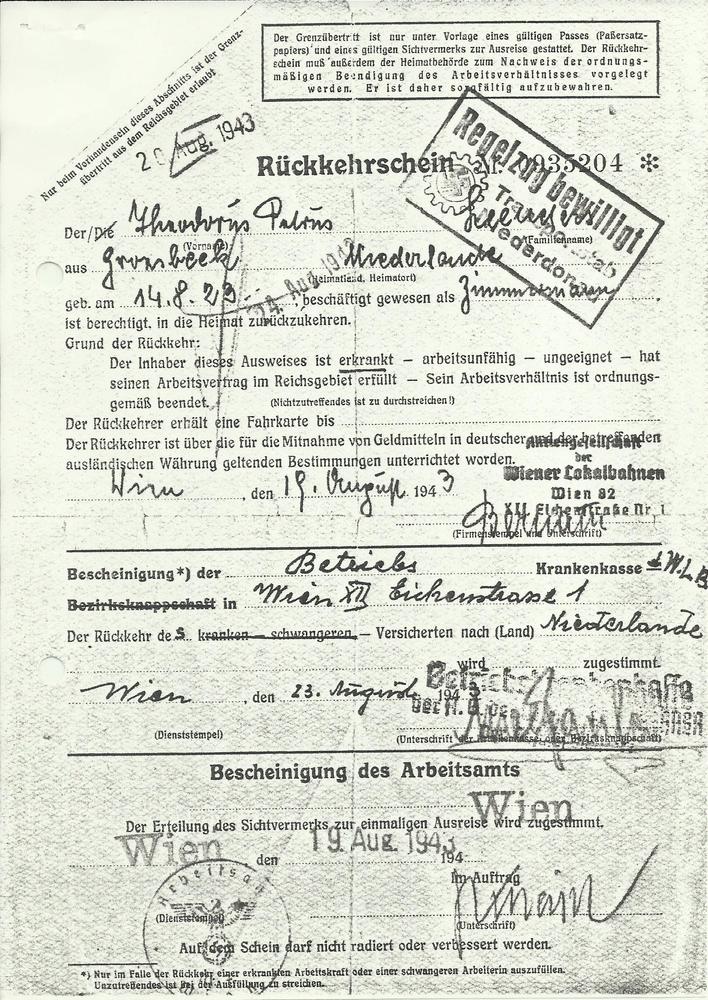 Der Grenzübertritt ist nur unter Vorlage eines gültigen Passes (Paßersatz-
papiers) und eines gültigen Sichtvermerks zur Ausreise gestattet. Der Rückkehr-
schein muß außerdem der Heimatbehörde zum Nachweis der ordnungs-
mäßigen Beendigung des Arbeitsverhältnisses vorgelegt
werden. Er ist daher sorgfältig aufzubewahren.
Nur beim Vorhandensein dieses Abschnitts ist der Grenz-
übertritt aus dem Reichsgebiet erlaubt
20 Aug. 1943
Regelzug bewilligt
Transportstab
Niederdonau
Rückkehrschein Nr. 0935204 *
Der/Die Theodorus Petrus
(Vorname) (Familienname)
aus Groesbeek Niederlande
(Heimatland, Heimatort)
24. Aug 1943
geb. am 14.8.23, beschäftigt gewesen als Zimmermann,
ist berechtigt, in die Heimat zurückzukehren.
Grund der Rückkehr:
Der Inhaber dieses Ausweises ist erkrankt — arbeitsunfähig — ungeeignet — hat
seinen Arbeitsvertrag im Reichsgebiet erfüllt — Sein Arbeitsverhältnis ist ordnungs-
gemäß beendet. (Nichtzutreffendes ist zu durchstreichen!)
Der Rückkehrer erhält eine Fahrkarte bis
Der Rückkehrer ist über die für die Mitnahme von Geldmitteln in deutscher und der betreffenden
ausländischen Währung geltenden Bestimmungen unterrichtet worden.
Aktiengesellschaft
der
Wiener Lokalbahnen
Wien 82
XII. Eichenstraße Nr. 1
Wien, den 19. August 1943
(Firmenstempel und Unterschrift)
Bescheinigung*) der Betriebs Krankenkasse d. W.L.B.
Bezirksknappschaft in Wien XII Eichenstrasse 1
Der Rückkehr des kranken — schwangeren — Versicherten nach (Land) Niederlande
wird zugestimmt.
Wien, den 23. August 1943
Betriebskrankenkasse
(Dienststempel) (Unterschrift der Krankenkasse oder Bezirksknappschaft)
Bescheinigung des Arbeitsamts
Wien
Der Erteilung des Sichtvermerks zur einmaligen Ausreise wird zugestimmt.
Wien den 19. Aug. 1943 194
Im Auftrag
Arbeitsamt
(Dienststempel) (Unterschrift)
Auf dem Schein darf nicht radiert oder verbessert werden.
*) Nur im Falle der Rückkehr einer erkrankten Arbeitskraft oder einer schwangeren Arbeiterin auszufüllen.
Unzutreffendes ist bei der Ausfüllung zu streichen.